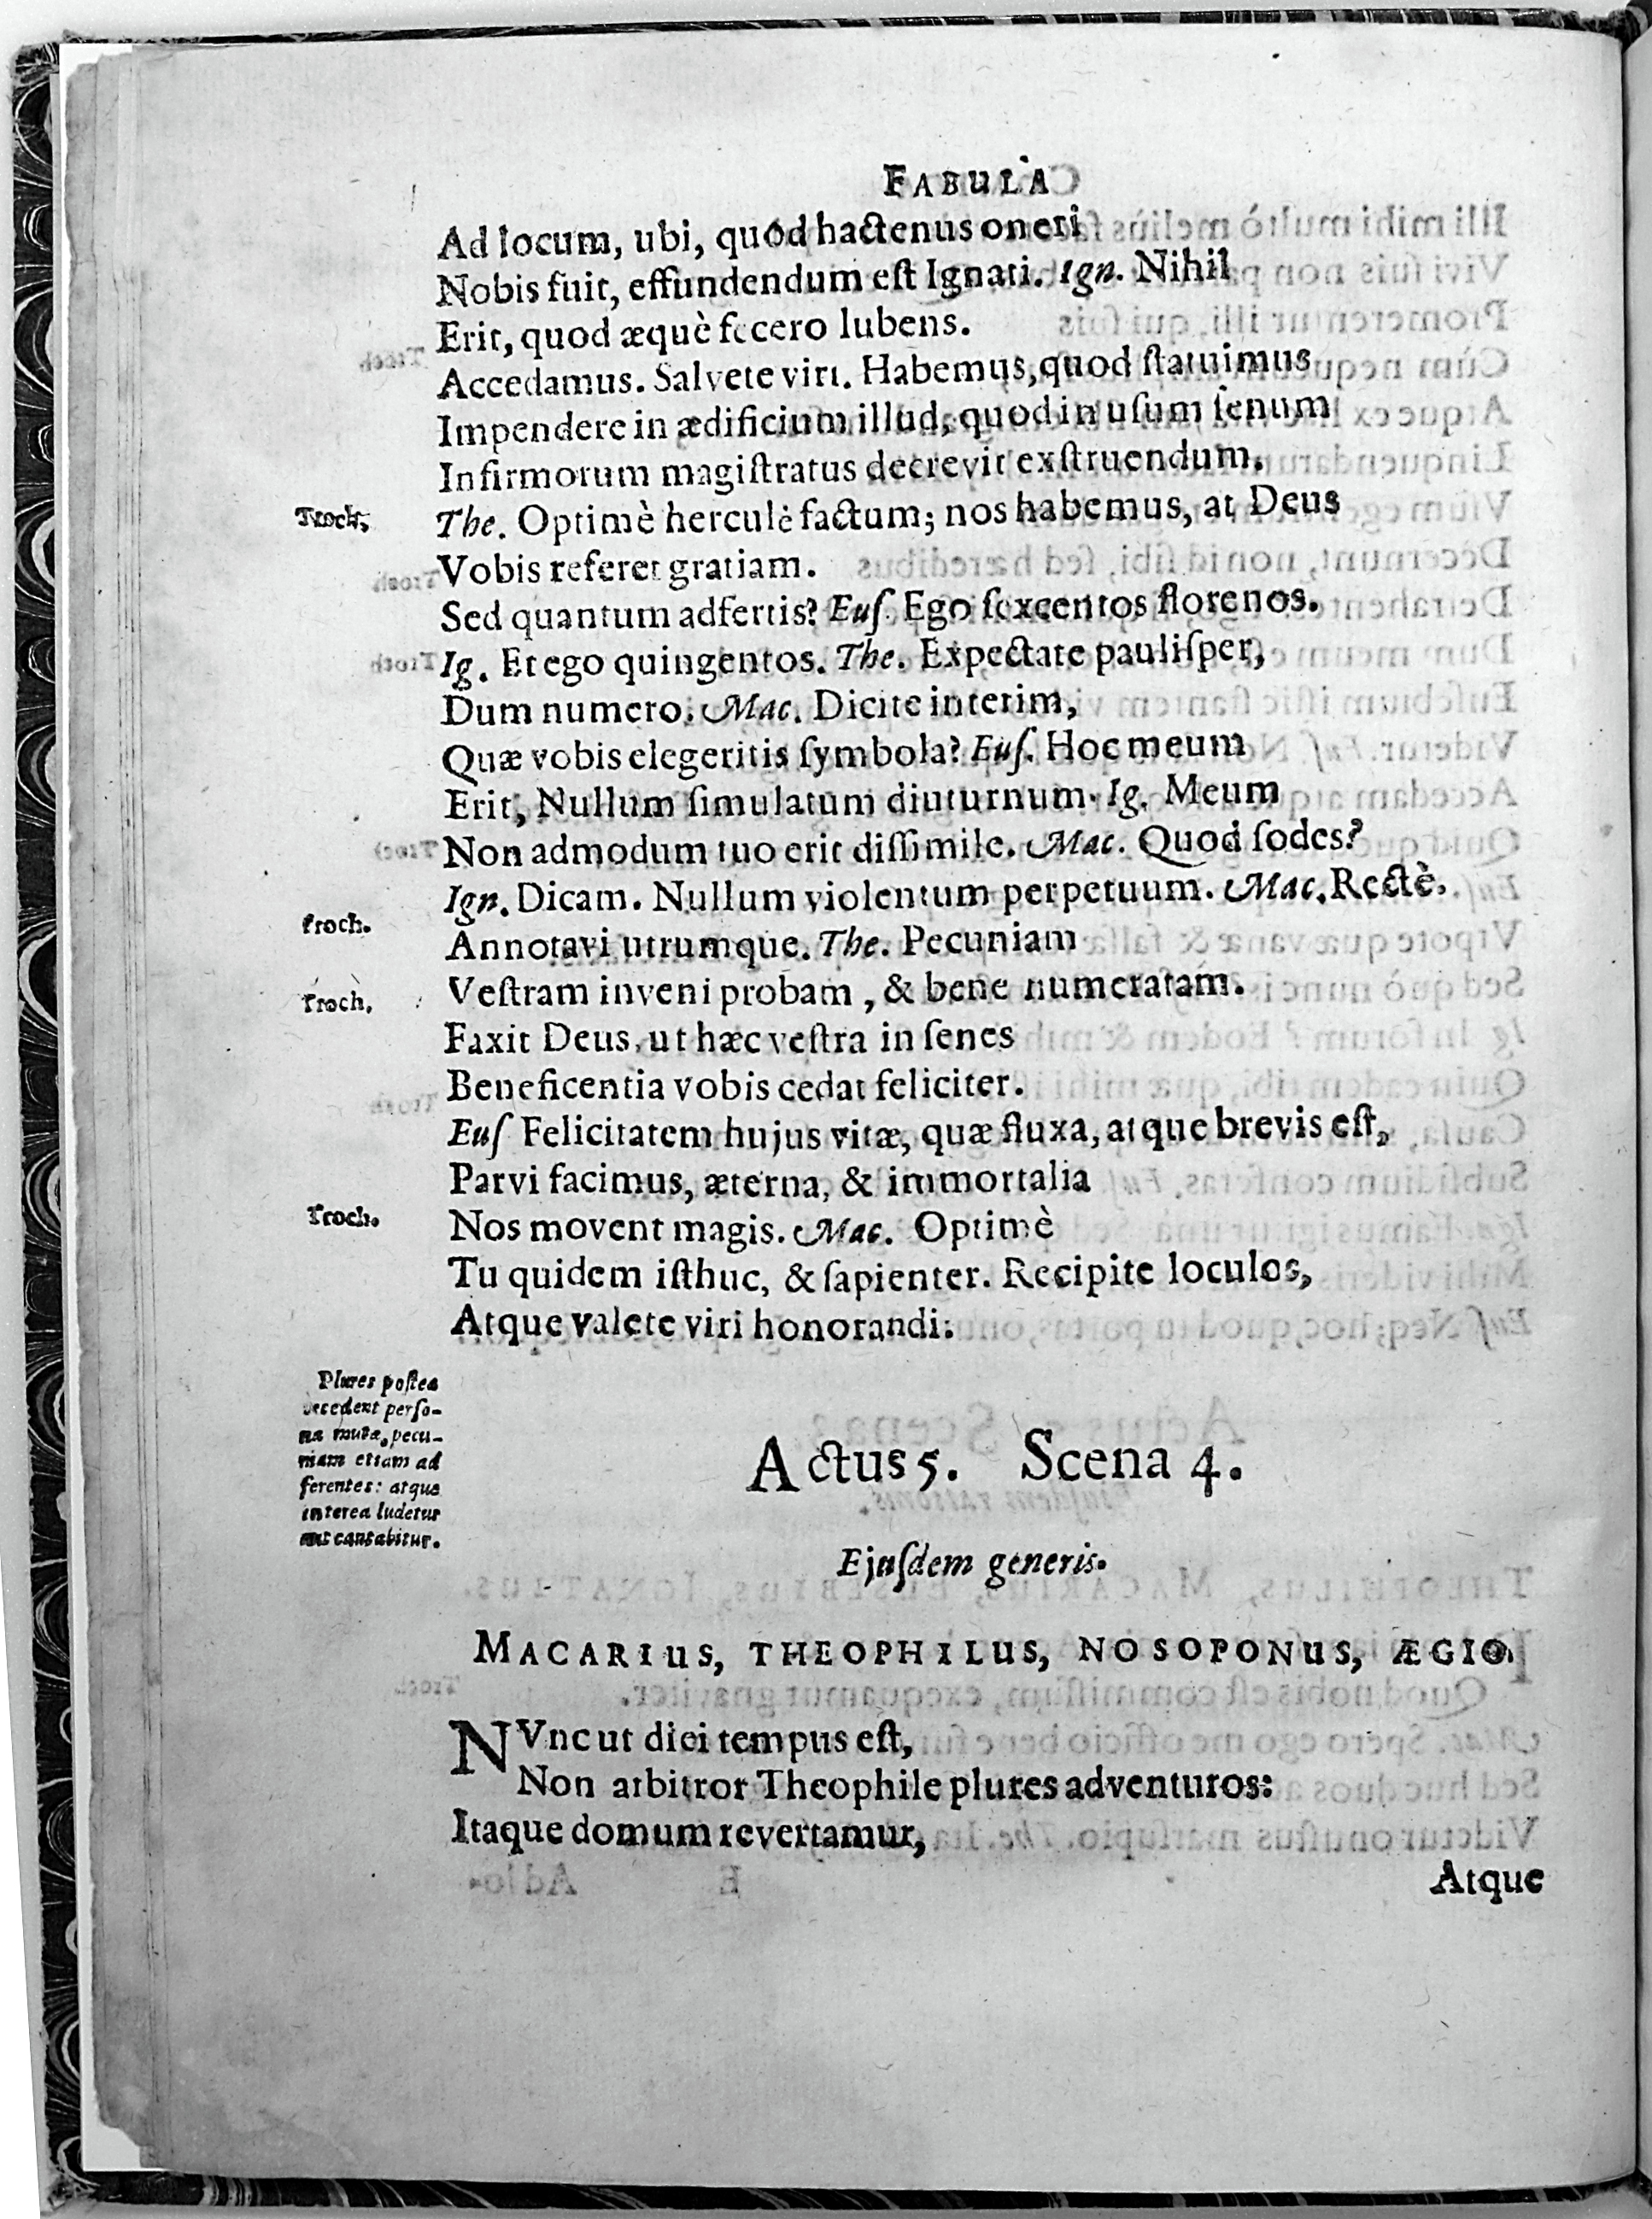 FABULA
Ad locum, ubi, quod hactenus oneri
Nobis fuit, effundendum eſt Ignati. Ign. Nihil
Erit, quod æquè fecero lubens.
Accedamus. Salvete viri. Habemus, quod ſtatuimus
Impendere in ædificium illud, quod in uſum ſenum
Infirmorum magiſtratus decrevit exſtruendum.
Troch. The. Optimè herculè factum; nos habemus, at Deus
Vobis referet gratiam.
Sed quantum adfertis? Euſ. Ego ſexcentos florenos.
Ig. Et ego quingentos. The. Expectate pauliſper,
Dum numero. Mac. Dicite interim,
Quæ vobis elegeritis ſymbola? Euſ. Hoc meum
Erit, Nullum ſimulatum diuturnum. Ig. Meum
Non admodum tuo erit diſſimile. Mac. Quod ſodes?
Ign. Dicam. Nullum violentum perpetuum. Mac. Rectè.
Troch. Annotavi utrumque. The. Pecuniam
Troch. Veſtram inveni probam, & bene numeratam.
Faxit Deus, ut hæc veſtra in ſenes
Beneficentia vobis cedat feliciter.
Euſ Felicitatem hujus vitæ, quæ fluxa, atque brevis eſt,
Parvi facimus, æterna, & immortalia
Troch. Nos movent magis. Mac. Optimè
Tu quidem iſthuc, & ſapienter. Recipite loculos,
Atque valete viri honorandi.
Plures poſtea
accedent perſo-
næ mutæ, pecu-
niam etiam ad
ferentes: atque
interea ludetur
aut cantabitur.
Actus 5. Scena 4.
Ejuſdem generis.
MACARIUS, THEOPHILUS, NOSOPONUS, ÆGIO.
NVnc ut diei tempus eſt,
Non arbitror Theophile plures adventuros:
Itaque domum revertamur,
Atque